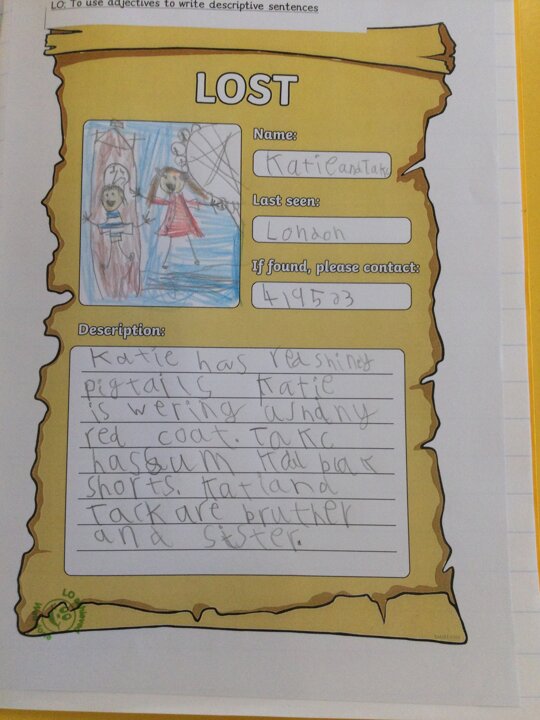 LO: To use adjectives to write descriptive sentences
LOST
Name:
Katie and Jak
Last seen:
London
If found, please contact:
419523
Description:
Katie has red shiney
pigtails Katie
is wering a
red coat. Jack
has sum black
shorts. Kati and
Jack are bruther
and sister.